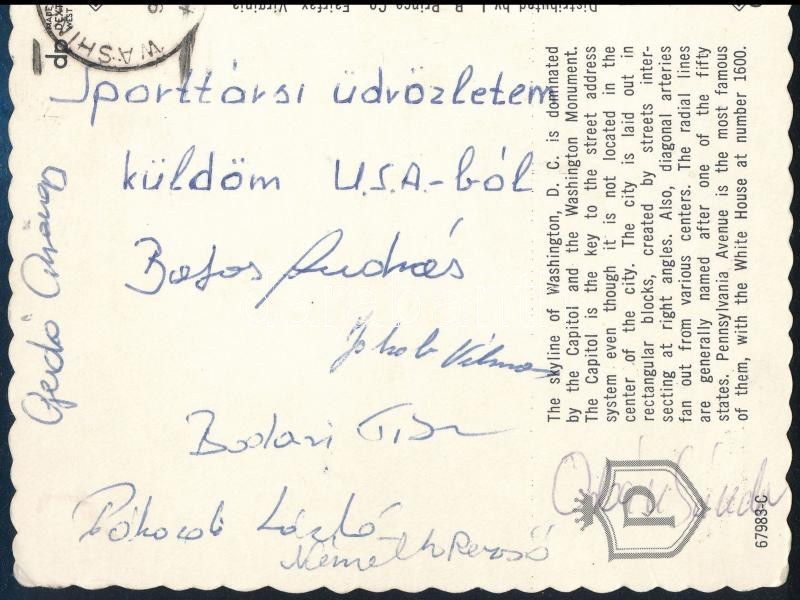 Sporttársi üdvözletem
küldöm U.S.A.-ból
Bajos András
Jakab Vilmos
Bodani
Pákozdi László
Németh Rezső
Gedó
Sándor
WASHI
dp
MADE
DEXT
WEST
Distributed by L. B. Prince Co. Fairfax, Virginia
The skyline of Washington, D. C. is dominated
by the Capitol and the Washington Monument.
The Capitol is the key to the street address
system even though it is not located in the
center of the city. The city is laid out in
rectangular blocks, created by streets inter-
secting at right angles. Also, diagonal arteries
fan out from various centers. The radial lines
are generally named after one of the fifty
states. Pennsylvania Avenue is the most famous
of them, with the White House at number 1600.
P
67983-C